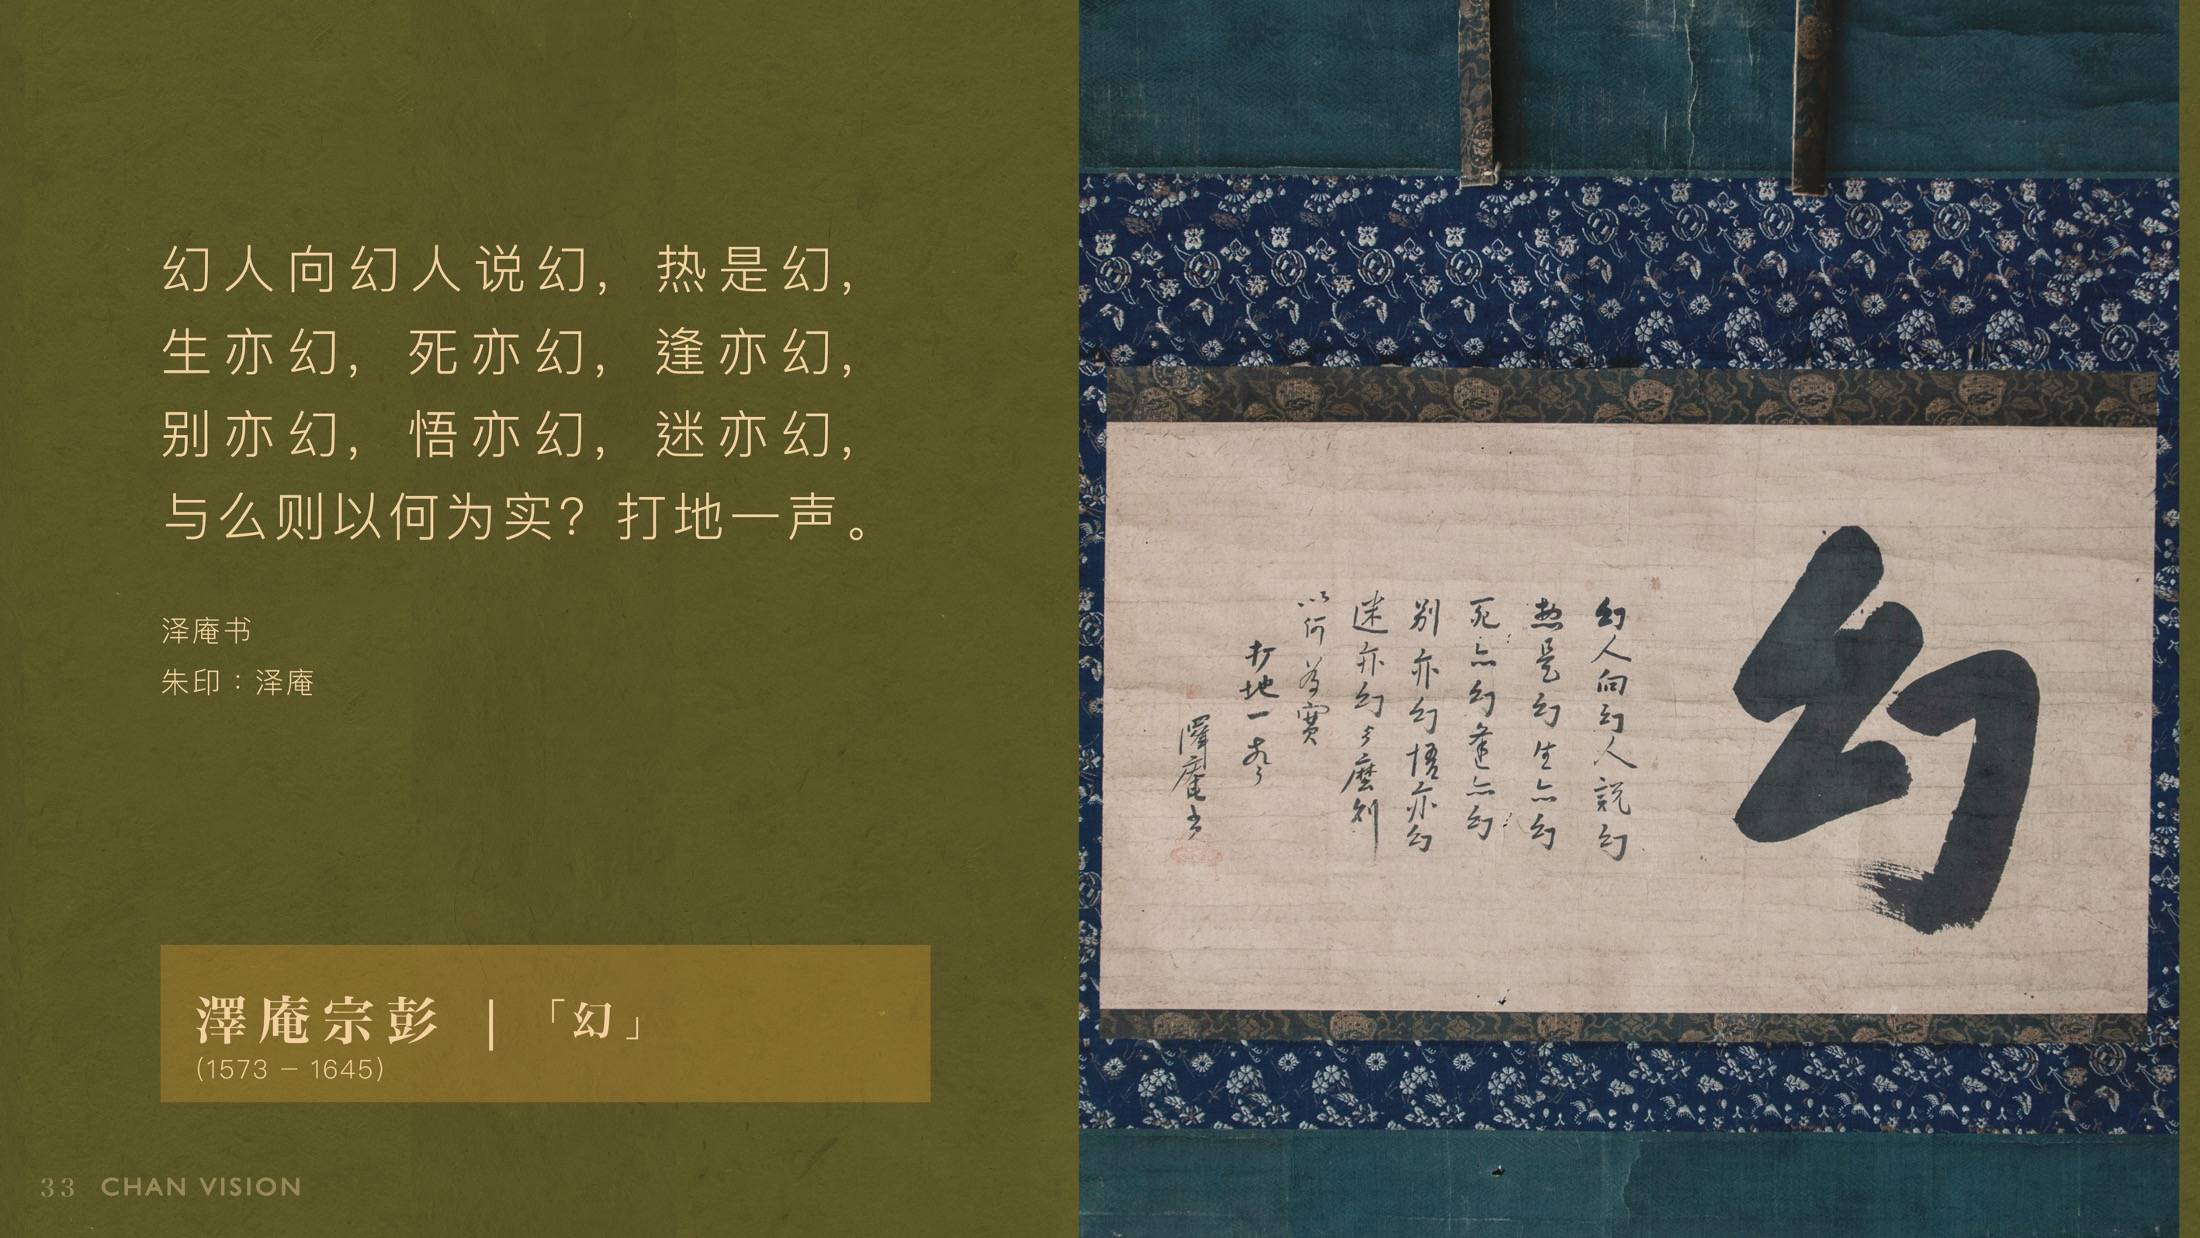 幻人向幻人说幻，热是幻，
生亦幻，死亦幻，逢亦幻，
别亦幻，悟亦幻，迷亦幻，
与么则以何为实？打地一声。
泽庵书
朱印：泽庵
澤庵宗彭 | 「幻」
(1573 – 1645)
33 CHAN VISION
幻
幻人向幻人説幻
熱是幻生亦幻
死亦幻逢亦幻
别亦幻悟亦幻
迷亦幻与麼則
以何為實
打地一声
澤庵書